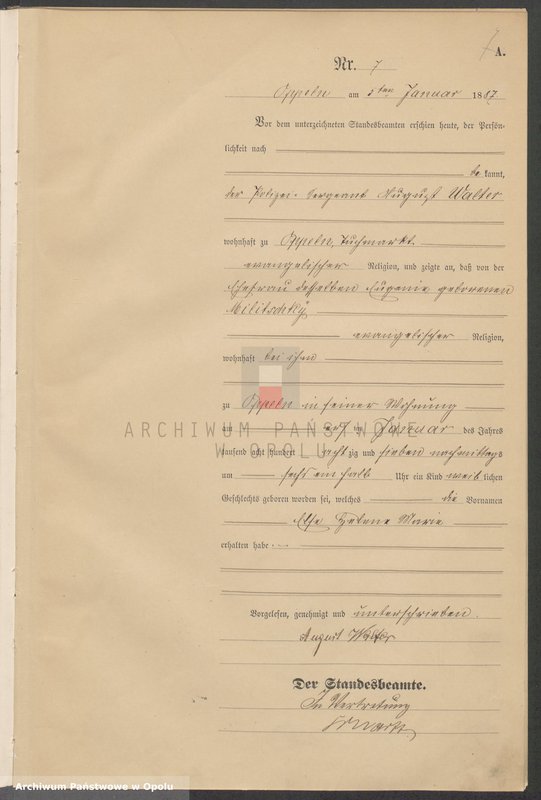 7
A.
Nr. 7
Oppeln am 5ten Januar 1887
Vor dem unterzeichneten Standesbeamten erschien heute, der Persön-
lichkeit nach
be kannt,
der Polizei-Sergeant August Walter
wohnhaft zu Oppeln, Tuchmarkt
evangelischer Religion, und zeigte an, daß von der
Ehefrau desselben Eugenie geborenen
Militschky
evangelischer Religion,
wohnhaft bei ihm
zu Oppeln in seiner Wohnung
am ersten Januar des Jahres
tausend acht hundert acht zig und sieben nachmittags
um sechs ein halb Uhr ein Kind weib lichen
Geschlechts geboren worden sei, welches die Vornamen
Else Helene Marie
erhalten habe
Vorgelesen, genehmigt und unterschrieben.
August Walter
Der Standesbeamte.
In Vertretung
ARCHIWUM PAŃSTWOWE
W OPOLU
Archiwum Państwowe w Opolu